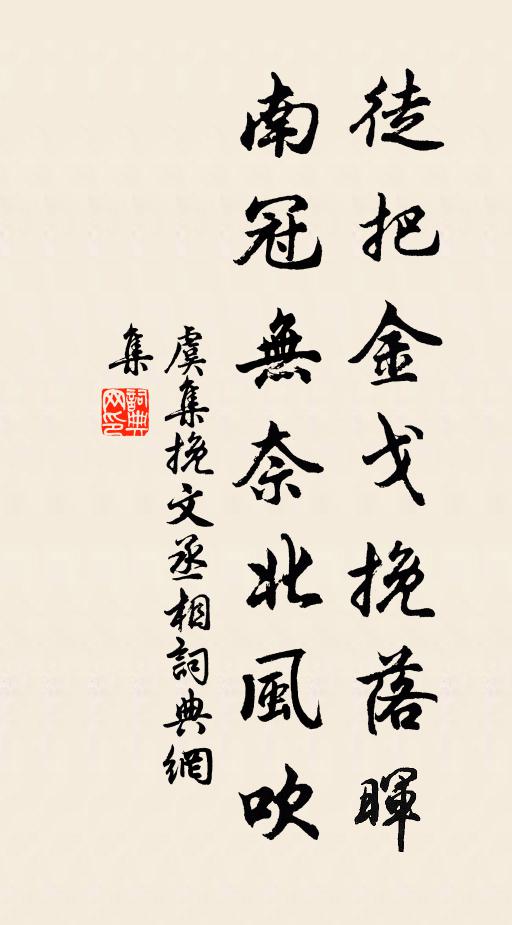 徒把金戈挽落暉
南冠無奈北風吹
虞集挽文丞相詞典網
集
詞典
网印